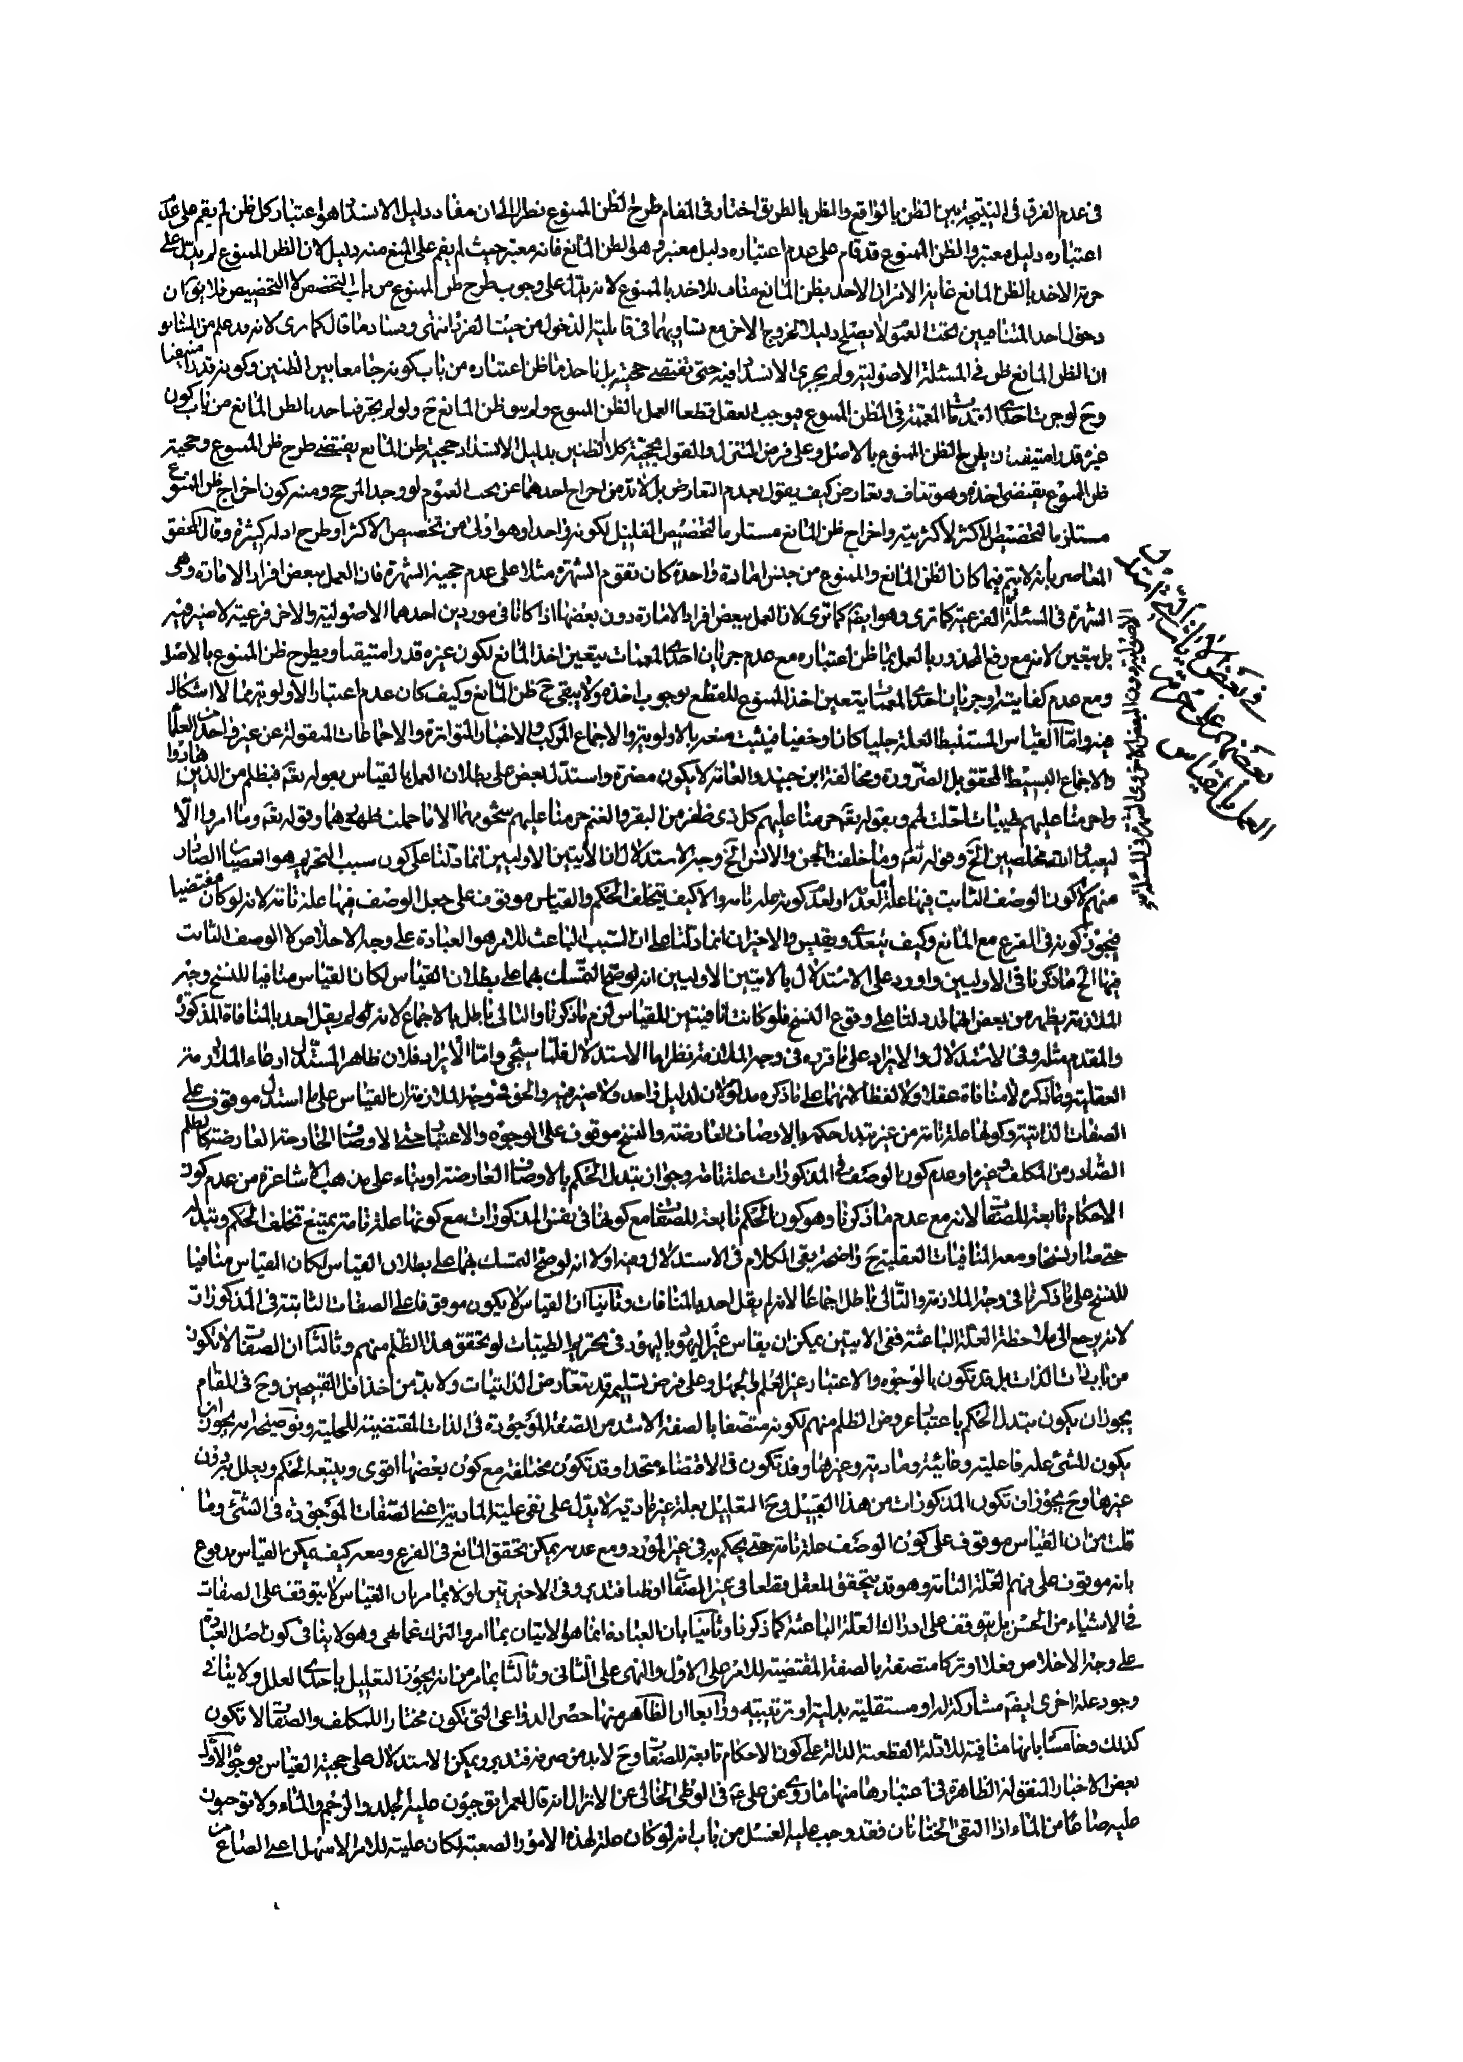 فى عدم الفرق فى النتيجة بين الظن بالواقع والظن بالطريق اختار فى المقام طرح الظن الممنوع نظرا الى ان مفاد دليل الانسداد هو اعتبار كل ظن لم يقم على عدم
اعتباره دليل معتبر والظن الممنوع قد قام على عدم اعتباره دليل معتبر وهو الظن المانع فانه معتبر حيث لم يقم على المنع منه دليل لان الظن الممنوع لم يدل على
حرمة الاخذ بالظن المانع غاية الامر ان الاخذ بظن المانع مناف للاخذ بالممنوع لا انه يدل على وجوب طرح ظن الممنوع من باب التخصص لا التخصيص فلا يق ان
دخول احد المتنافيين تحت العموم لا يصلح دليلا لخروج الاخر مع تساويهما فى قابلية الدخول من حيث الفردية انتهى وفساد ما قال كما ترى لانه قد علم من السابق
ان الظن المانع ظن فى المسئلة الاصولية ولم يجرى الانسداد فيه حتى تقتضى حجيته بل ناخذ ما ظن اعتباره من باب كونه جامعا بين الظنين وكونه قدرا متيقنا
وح لو جرت احدى المقدمات المعممة فى الظن الممنوع فيوجب العقل قطعا العمل بالظن الممنوع ولم يبق ظن المانع ح ولو لم يجر فناخذ بالظن المانع من باب كون
غيره قدرا متيقنا ويطرح الظن الممنوع بالاصل وعلى فرض التنزل والقول بحجية كلا الظنين بدليل الانسداد حجية ظن المانع يقتضى طرح ظن الممنوع وحجية
ظن الممنوع يقتضى اخذه وهو تناف وتعارض كيف يقول بعدم التعارض بل لا بد من اخراج احدهما عن تحت العموم لو وجد المرجح ومنه كون اخراج ظن الممنوع
مستلزما لتخصيص الاكثر لاكثريته واخراج ظن المانع مستلزما لتخصيص القليل لكونه واحدا وهو اولى من تخصيص الاكثر او طرح ادلة كثيرة وقال المحقق
المعاصر بانه لا يتم فيما كان الظن المانع والممنوع من جنس امارة واحدة كان تقوم الشهرة مثلا على عدم حجية الشهرة فان العمل ببعض افراد الامارة وهى
الشهرة فى المسئلة الفرعية كما ترى وهو ايضا كما ترى لان العمل ببعض افراد الامارة دون بعضها اذا كانا فى موردين احدهما الاصولية والاخر فرعية لا ضير فيه
بل يتعين لانه مع رفع المحذور بالعمل بما ظن اعتباره مع عدم جريان احدى المعممات يتعين اخذ المانع لكون غيره قدرا متيقنا ويطرح ظن الممنوع بالاصل
ومع عدم كفايته او جريان احدى المعممات يتعين اخذ الممنوع للقطع بوجوب اخذه ولا يبقى ح ظن المانع وكيف كان عدم اعتبار الاولوية مما لا اشكال
فيه واما القياس المستنبط العلة جليا كان او خفيا فيثبت منعه بالاولوية والاجماع المركب والاخبار المتواترة والاجماعات المنقولة عن غير واحد من العلماء
والاجماع البسيط المحقق بل الضرورة ومخالفة ابن جنيد والعامة لا يكون مضرة واستدل بعض على بطلان العمل بالقياس بقوله تعه فبظلم من الذين هادوا
واحرمنا عليهم طيبات احلت لهم وبقوله تعه حرمنا عليهم كل ذى ظفر من البقر والغنم حرمنا عليهم شحومهما الا ما حملت ظهورهما وقوله تعه وما امروا الا
ليعبدوا الله مخلصين الخ وقوله تعه وما خلقت الجن والانس الخ وجه الاستدلال ان الايتين الاوليين انما دلتا على كون سبب التحريم هو العصيان الصادر
منهم لا كون الوصف الثابت فيها علة لعدمه او لعدم كونه علة تامة والا كيف يتخلف الحكم والقياس موقوف على جعل الوصف فيها علة تامة لانه لو كان مقتضيا
فيجوز كونه فى الفرع مع المانع وكيف يتعدى ويقيس والاخيرتان انما دلتا على ان السبب الباعث للامر هو العبادة على وجه الاخلاص لا الوصف الثابت
فيها الخ ما ذكرنا فى الاوليين واورد على الاستدلال بالايتين الاوليين انه لو صح التمسك بهما على بطلان القياس لكان القياس منافيا للنسخ وجه
الملازمة يظهر من بعض انها قد دلتا على وقوع النسخ فلو كانت نافيتين للقياس لزم ما ذكرنا والتالى باطل بالاجماع لانه لم يقل احد بالمنافاة المذكورة
والمقدم مثله وفى الاستدلال والايراد على ما قربه فى وجه الملازمة نظر اما الاستدلال فلما سيجئ واما الايراد فلان ظاهر المستدل ادعاء الملازمة
العقلية وما ذكره لا منافاة عقلا ولا لفظا لانهما على ما ذكره مدلولان لدليل واحد ولا ضير فيه والحق فى وجه الملازمة ان القياس على ما استدل موقوف على
الصفات الذاتية وكونها علة تامة من غير تبدل حكمه بالاوصاف العارضة والنسخ موقوف على الوجوه والاعتبارات حتى الاوصاف الخارجة العارضة كالظلم
الصادر من المكلف وغيره او عدم كون الوصف فى المذكورات علة تامة وجواز تبدل الحكم بالاوصاف العارضة او بناء على مذهب الاشاعرة من عدم كون
الاحكام تابعة للصفات لانه مع عدم ما ذكرنا وهو كون الحكم تابعة للصفات مع كونها فى نفس المذكورات مع كونها علة تامة يمتنع تخلف الحكم وتبدله
حتى صار نسخا ومعه المنافيات العقلية ح واضحة بقى الكلام فى الاستدلال وفيه اولا انه لو صح التمسك بهما على بطلان القياس لكان القياس منافيا
للنسخ على ما ذكرنا فى وجه الملازمة والتالى باطل اجماعا لانه لم يقل احد بالمنافات وثانيا ان القياس لا يكون موقوفا على الصفات الثابتة فى المذكورات
لانه يرجع الى ملاحظة العلة الباعثة ففى الايتين يمكن ان يقاس غير اليهود باليهود فى تحريم الطيبات لو تحقق هذا الظلم منهم وثالثا ان الصفات لا تكون
من باب ذات الذات بل قد تكون بالوجوه والاعتبار غير العلم والجهل وعلى فرض تسليم قد يتعارض الذاتيات ولا بد من اخذ اقل القبيحين وح فى المقام
يجوز ان يكون تبدل الحكم باعتبار عروض الظلم منهم لكونه متصفا بالصفة الاشد من الصفة الموجودة فى الذات المقتضية للحلية وتوضيحه انه يجوز ان
يكون للشئ علة فاعلية وغائية ومادية وغيرها وقد تكون فى الاقتضاء متحدا وقد تكون مختلفة مع كون بعضها اقوى ويتبعه الحكم ويعلل به دون
غيرها وح يجوز ان تكون المذكورات من هذا القبيل وح التعليل بعلة غير مادية لا يدل على نفى علية المادية اعنى الصفات الموجودة فى الشئ وما
قلت من ان القياس موقوف على كون الوصف علة تامة حتى يحكم به فى غير المورد ومع عدمه يمكن تحقق المانع فى الفرع ومعه كيف يمكن القياس مدفوع
بانه موقوف على فهم العلة التامة وهو قد يتحقق للعقل قطعا فى غير الصفات او ظنا فتدبر وفى الاخيرتين اولا بما مر بان القياس لا يتوقف على الصفات
فى الاشياء من الحسن بل يتوقف على ادراك العلة الباعثة كما ذكرنا وثانيا بان العبادة انما هو الاتيان بما امر والترك عما نهى وهو لا ينافى كون اصل العبادة
على وجه الاخلاص فعلا او تركا متصفة بالصفة المقتضية للامر على الاول والنهى على الثانى وثالثا بما مر من انه يجوز التعليل باحدى العلل ولا ينافى
وجود علة اخرى ايضا مشاركة له او مستقلية بدلية او ترتيبية ورابعا ان الظاهر منها حصر الدواعى التى تكون مختارا للمكلف والصفات لا تكون
كذلك وخامسا بانها منافية للادلة القطعية الدالة على كون الاحكام تابعة للصفات وح لا بد من صرفه فتدبر ويمكن الاستدلال على حجية القياس بوجوه الاول
بعض الاخبار المنقولة الظاهرة فى اعتبارها منها ما روى عن على ع فى الوطى الخالى عن الانزال انه قال لعمر اتوجبون عليه الجلد والرجم والماء ولا توجبون
عليه صاعا من الماء اذا التقى الختانان فقد وجب عليه الغسل من باب انه لو كان علة لهذه الامور الصعبة لكان علية للامر الاسهل اعنى الصاع من